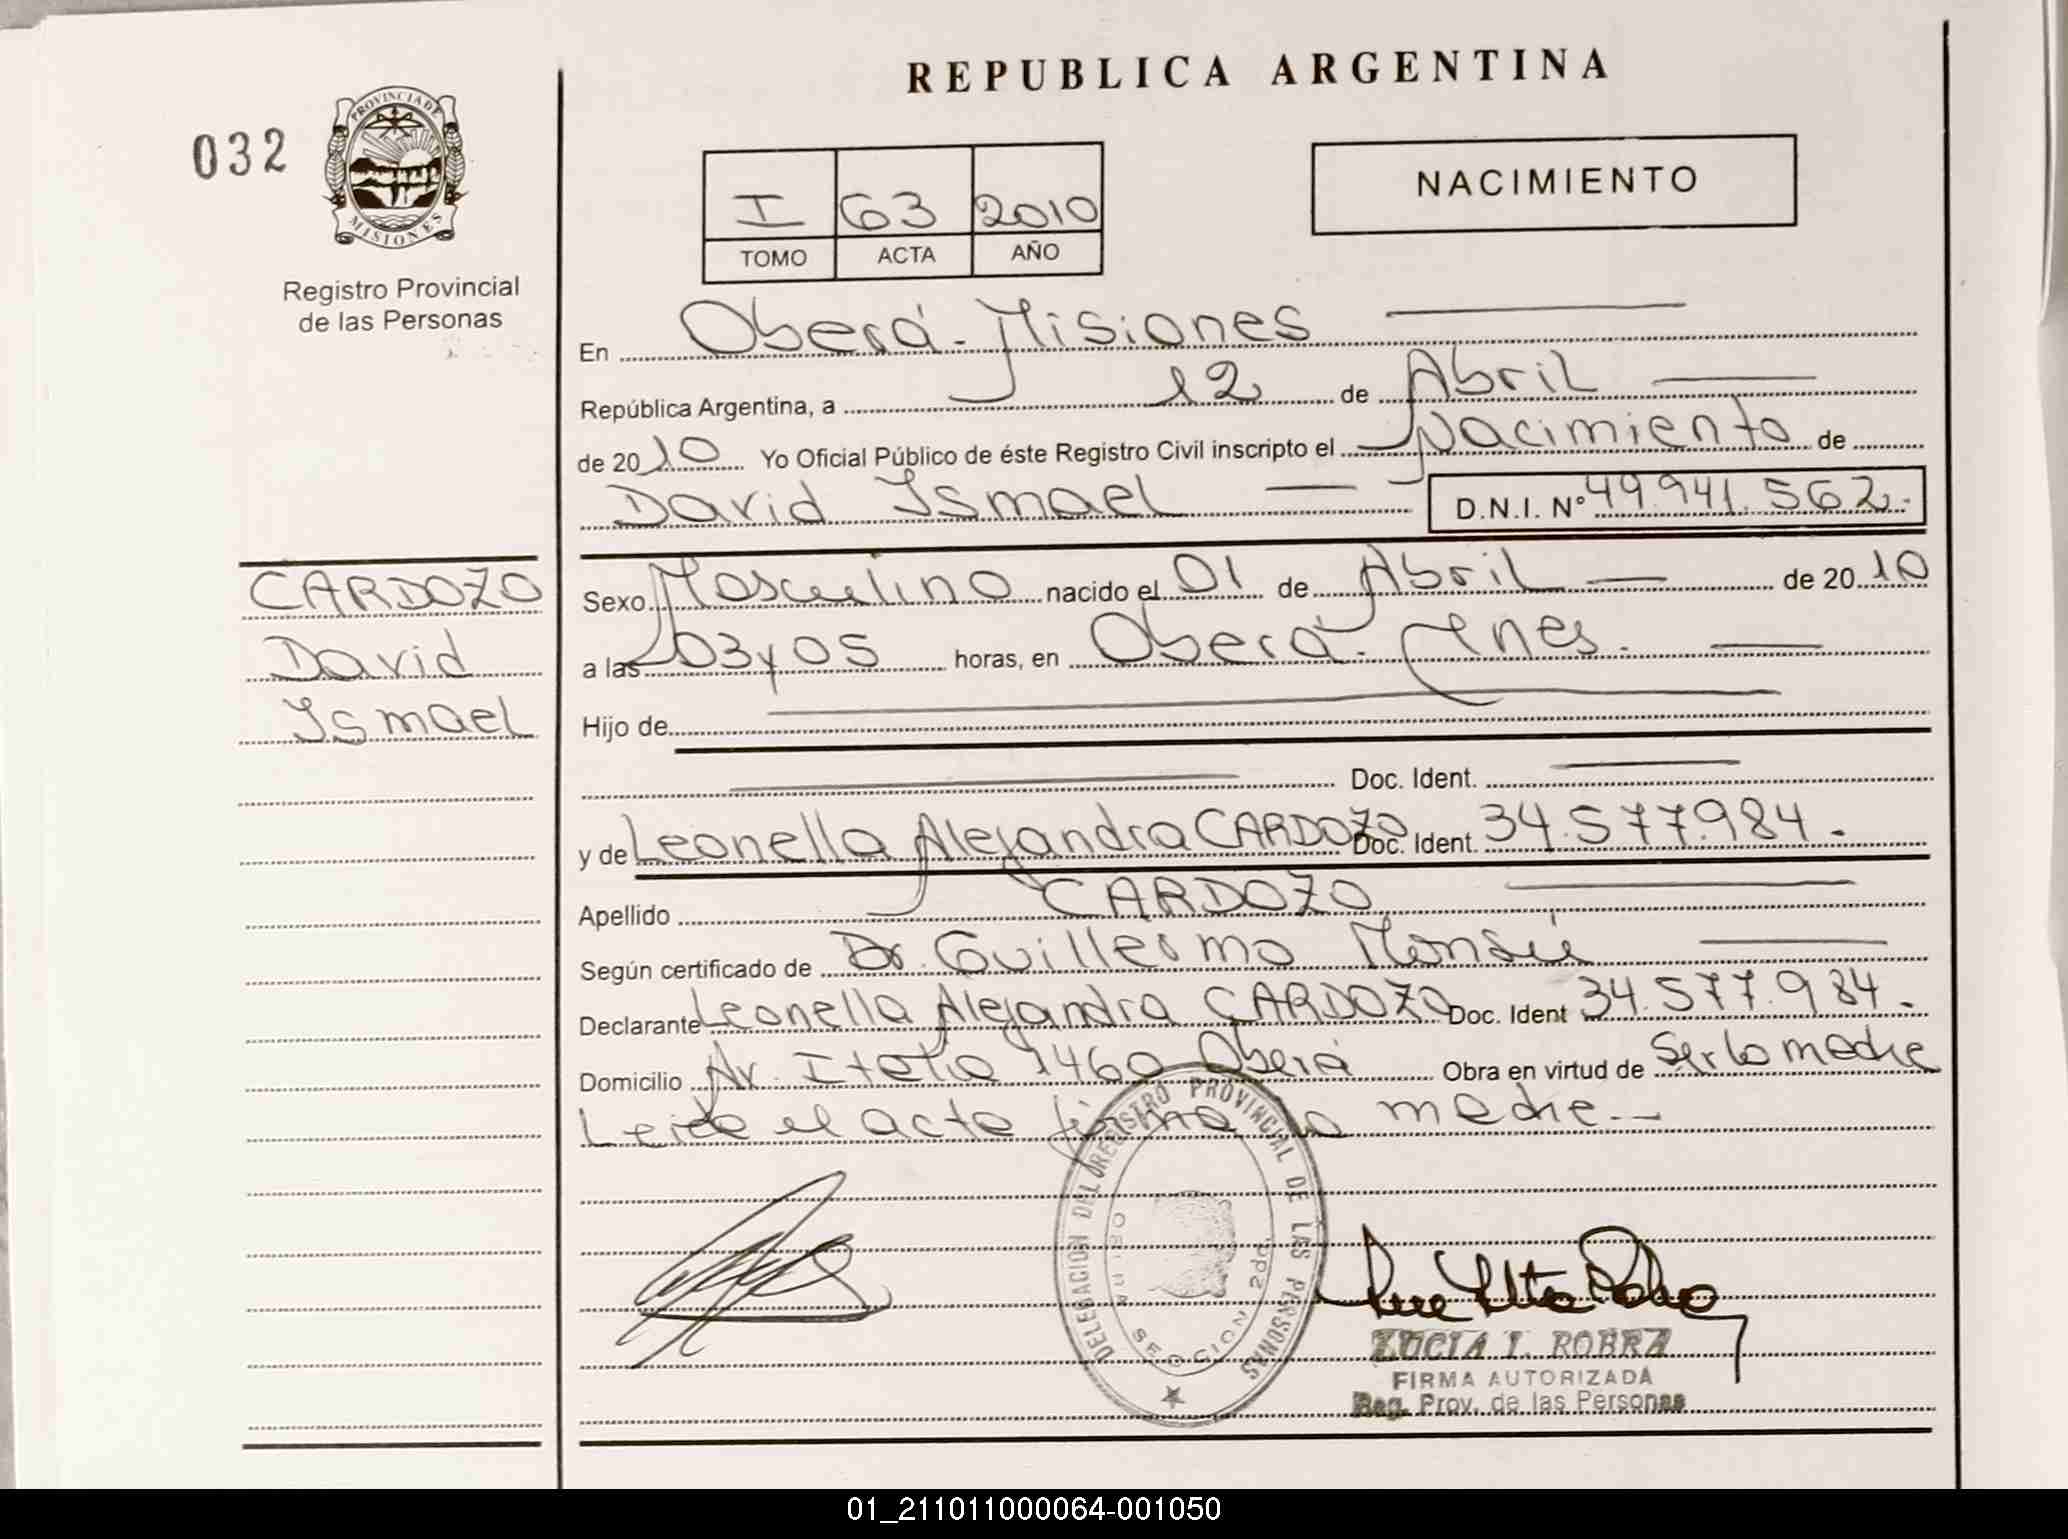 REPUBLICA ARGENTINA
032
PROVINCIA DE MISIONES
Registro Provincial
de las Personas
I 63 2010
TOMO ACTA AÑO
NACIMIENTO
En Oberá - Misiones
República Argentina, a 12 de Abril
de 2010 Yo Oficial Público de éste Registro Civil inscripto el Nacimiento de
David Ismael D.N.I. Nº 49.941.562.-
CARDOZO
David
Ismael
Sexo Masculino nacido el 01 de Abril de 2010
a las 03 y 05 horas, en Oberá - Mnes.
Hijo de
Doc. Ident.
y de Leonella Alejandra CARDOZO Doc. Ident. 34.577.984.-
Apellido CARDOZO
Según certificado de Dr. Guillermo
Declarante Leonella Alejandra CARDOZO Doc. Ident 34.577.984.-
Domicilio Av. Italia 1460 Oberá Obra en virtud de Ser la madre
Leida el acta firma la madre.-
DELEGACION DEL REGISTRO PROVINCIAL DE LAS PERSONAS
OBERA SECCION 2da.
LUCIA I. ROBRA
FIRMA AUTORIZADA
Reg. Prov. de las Personas
01_211011000064-001050